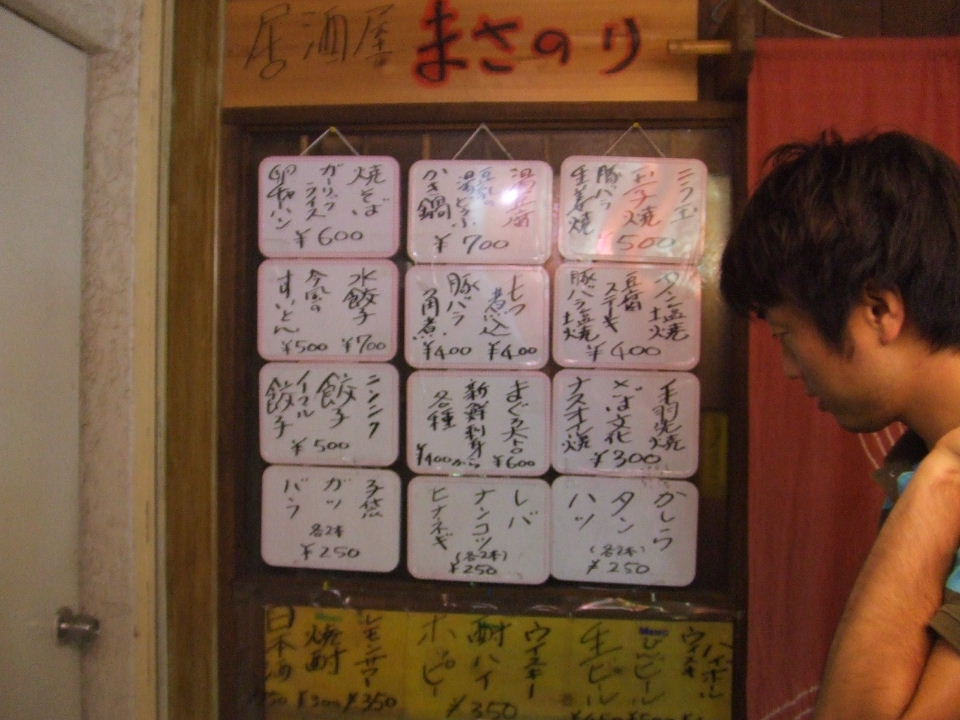 居酒屋 まさのり
ニラ玉
豚バラ
生姜焼
500
湯豆腐
かき鍋
¥700
焼そば
ガーリックライス
卵チャーハン
¥600
タン塩焼
豆腐ステーキ
豚バラ塩焼
¥400
もつ煮込
¥400
豚バラ角煮
¥400
水餃子
¥700
今風のすいとん
¥500
手羽先焼
さば文化
ナスオイル焼
¥300
まぐろ
¥600
新鮮刺身
各種
¥400から
ニンニク餃子
餃子
¥500
かしら
タン
ハツ
(各2本)
¥250
レバ
ナンコツ
ヒナネギ
(各2本)
¥250
子袋
ガツ
バラ
各2本
¥250
ハイボール
ウイスキー
ビール
生ビール
ウイスキー
酎ハイ
¥350
ホッピー
レモンサワー
¥350
焼酎
¥300
日本酒